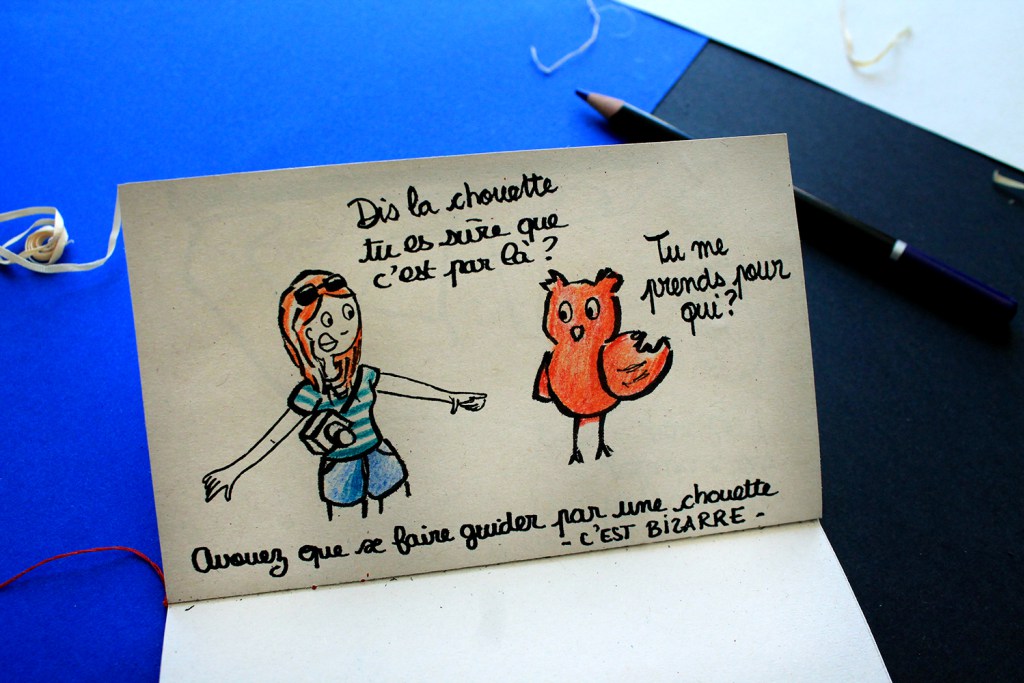 Dis la chouette
tu es sûre que
c'est par là ?
Tu me
prends pour
qui ?
Avouez que se faire guider par une chouette
- C'EST BIZARRE -